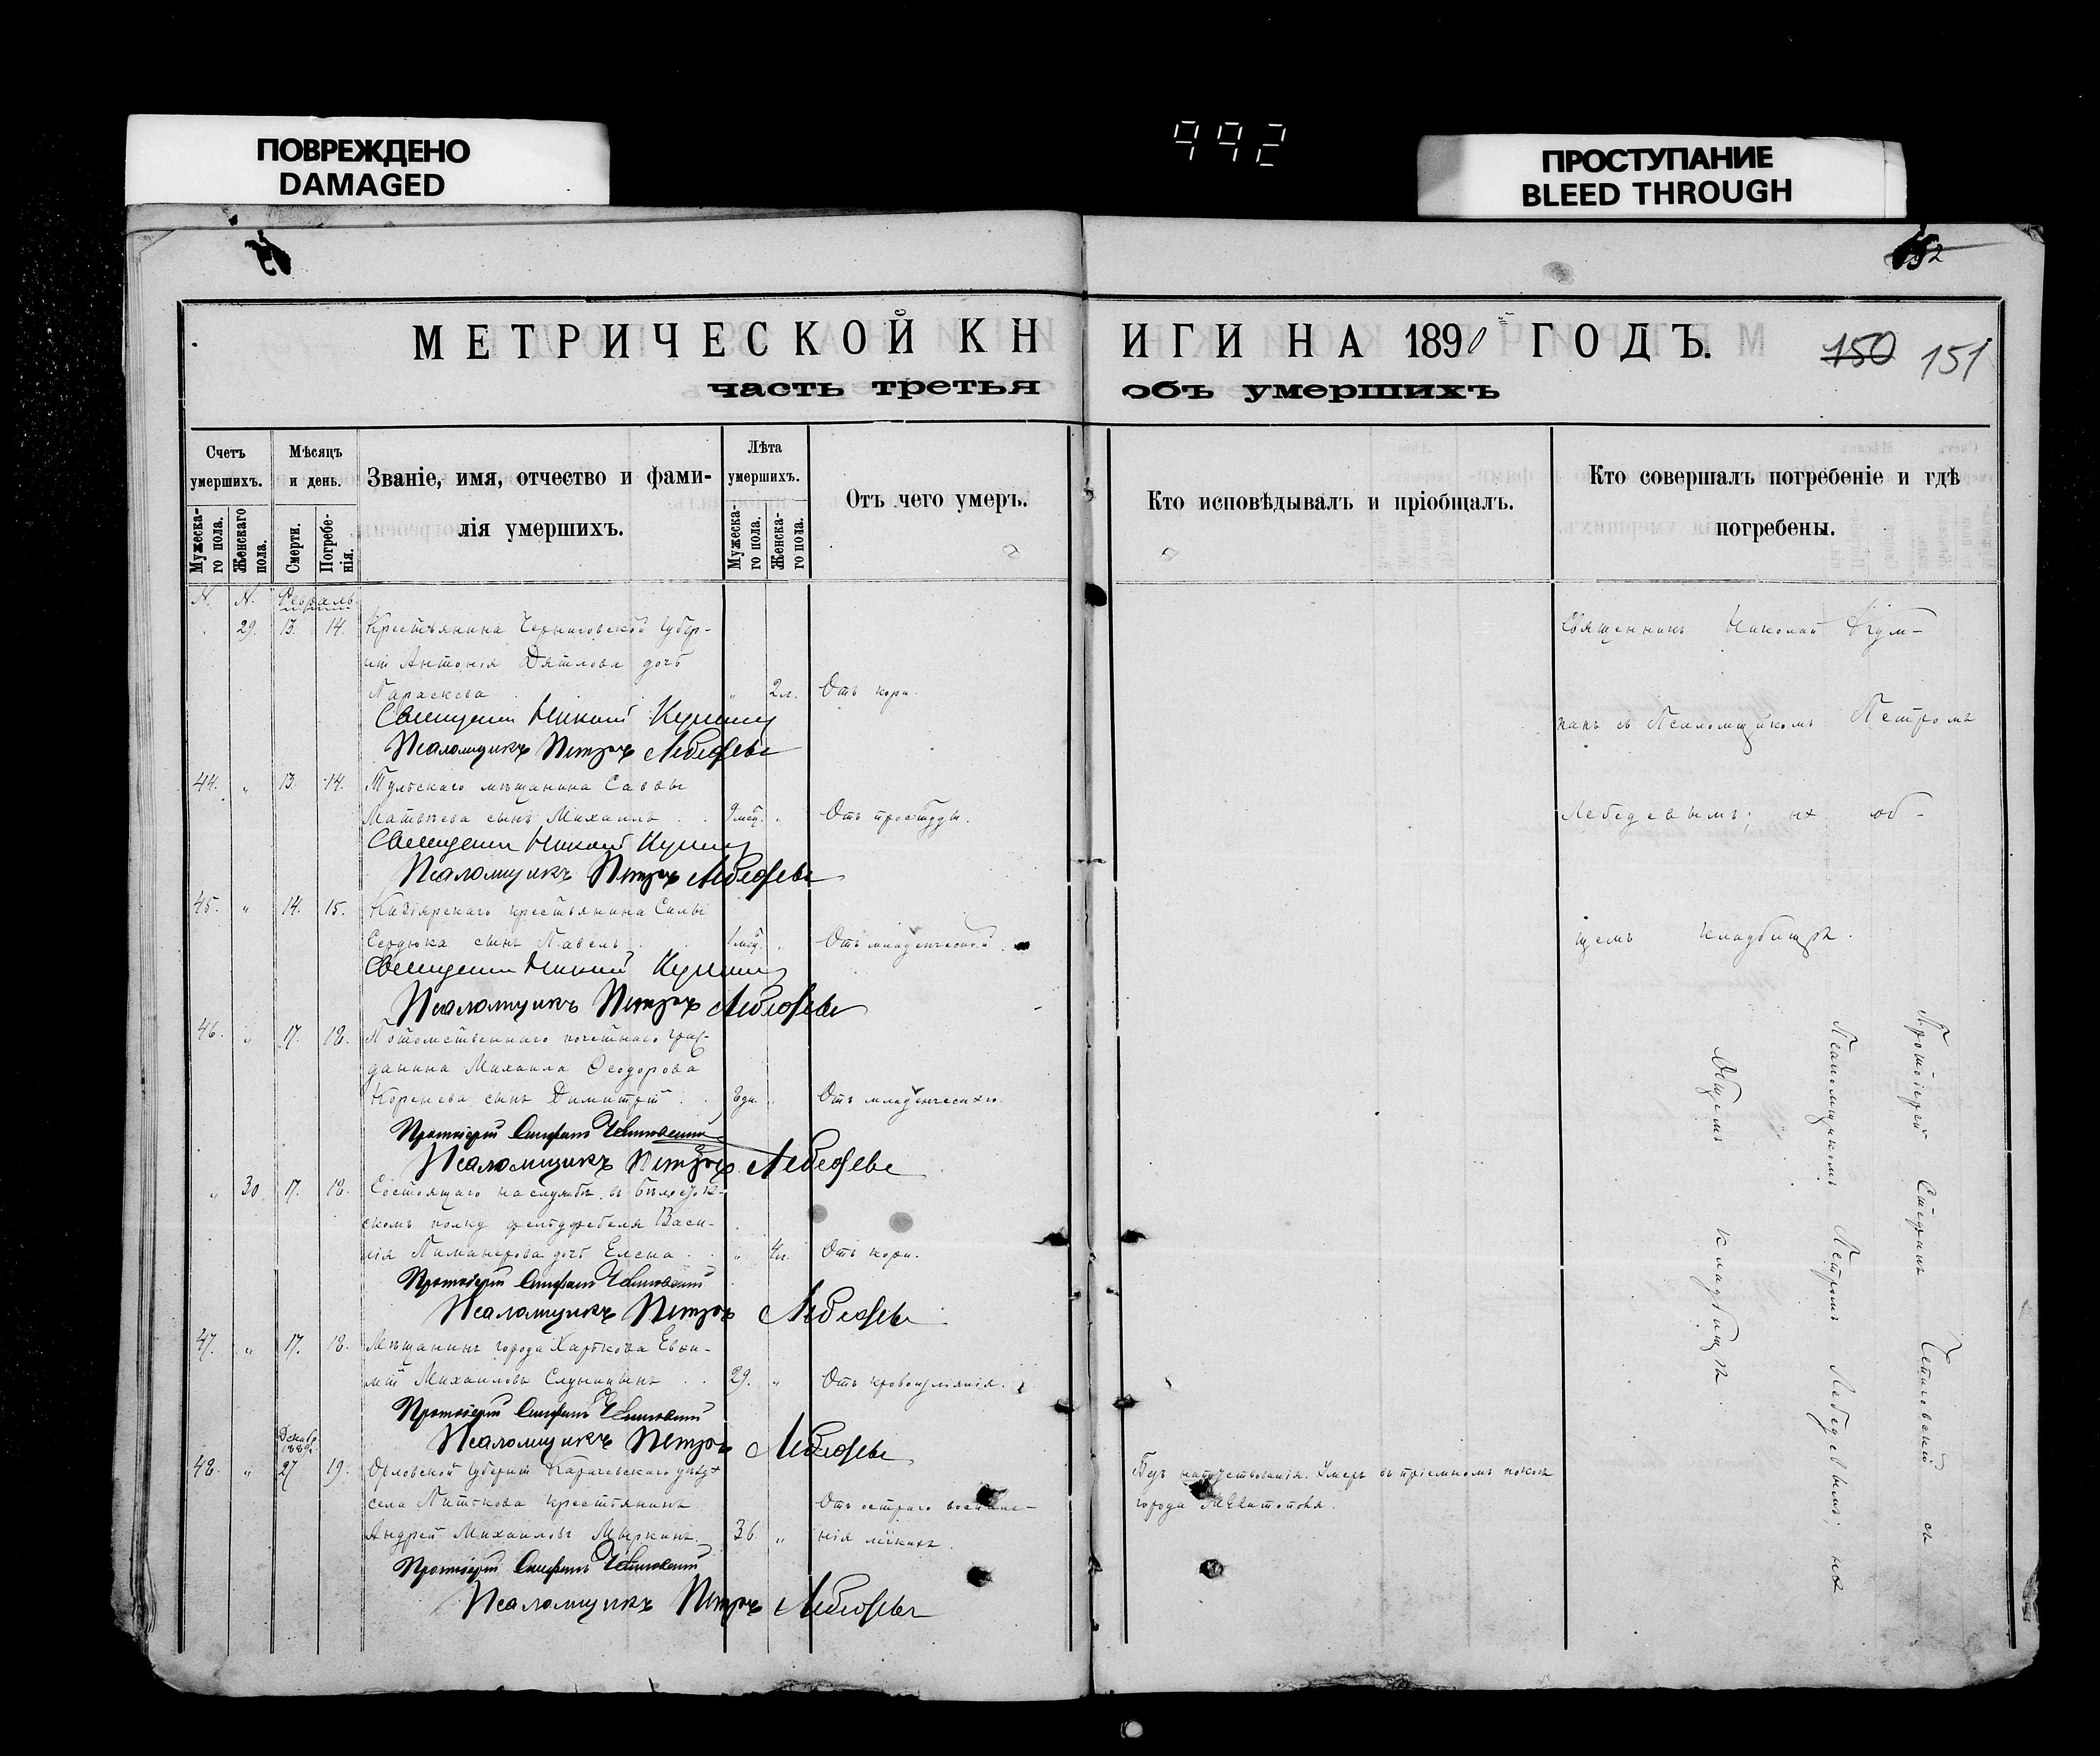 ПОВРЕЖДЕНО
DAMAGED
992
ПРОСТУПАНИЕ
BLEED THROUGH
МЕТРИЧЕСКОЙ КНИГИ НА 1890 ГОДЪ.
150 151
часть третья объ умершихъ
Счетъ умершихъ.
Мужеска-го пола.
Женскаго пола.
Мѣсяцъ и день.
Смерти.
Погребе-нія.
Званіе, имя, отчество и фами-
лія умершихъ.
Лѣта умершихъ.
Мужеска-го пола.
Женска-го пола.
Отъ чего умеръ.
Кто исповѣдывалъ и пріобщалъ.
Кто совершалъ погребеніе и гдѣ
погребены.
N. N. Февраль
29. 13. 14. Крестьянина Черниговской Губер-
ніи Антонія Дятлова дочь
Параскева " 2 л. Отъ кори.
Священникъ Николай
Псаломщикъ Петръ Лебедевъ
44. " 13. 14. Тульскаго мѣщанина Саввы
Матвѣева сынъ Михаилъ 9 мѣс. " Отъ простуды.
Священникъ Николай
Псаломщикъ Петръ Лебедевъ
45. " 14. 15. крестьянина Силы
Сердюка сынъ Павелъ 1 мѣс. " Отъ младенческой.
Священникъ Николай
Псаломщикъ Петръ Лебедевъ
46. " 17. 18. Потомственнаго почетнаго граж-
данина Михаила Ѳеодорова
Коренева сынъ Димитрій 8 дн. " Отъ младенческаго.
Протоіерей Стефанъ
Псаломщикъ Петръ Лебедевъ
" 30 17. 18. Состоящаго на службѣ въ Бѣлосток-
скомъ полку фельдфебеля Васи-
лія дочь Елена " 4 л. Отъ кори.
Протоіерей Стефанъ
Псаломщикъ Петръ Лебедевъ
47. " 17. 18. Мѣщанинъ города Харькова Евѳи-
мій Михаиловъ 29. " Отъ кровоизліянія.
Протоіерей Стефанъ
Псаломщикъ Петръ Лебедевъ
Декабр.
1889г.
48. " 27 19. Орловской Губерніи Карачевскаго уѣзда
села крестьянинъ Отъ остраго воспале-
Андрей Михаиловъ Мыркинъ. 36. " нія легкихъ.
Протоіерей Стефанъ
Псаломщикъ Петръ Лебедевъ
Безъ напутствованія. Умеръ въ пріемномъ покоѣ
города Мелитополя.
Священникъ Николай
съ Псаломщикомъ Петромъ
Лебедевымъ; на об-
щемъ кладбищѣ.
Протоіерей Стефанъ съ
Псаломщикомъ Петромъ Лебедевымъ; на
Общемъ кладбищѣ